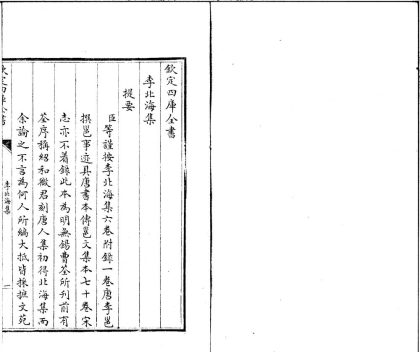 欽定四庫全書
李北海集
提要
臣等謹按李北海集六卷附錄一卷唐李邕
撰邕事迹具唐書本傳邕文集本七十卷宋
志亦不着錄此本為明無錫曹荃所刊前有
荃序稱紹和徵君刻唐人集初得北海集而
余論之不言為何人所編大抵皆採摭文苑
李北海集